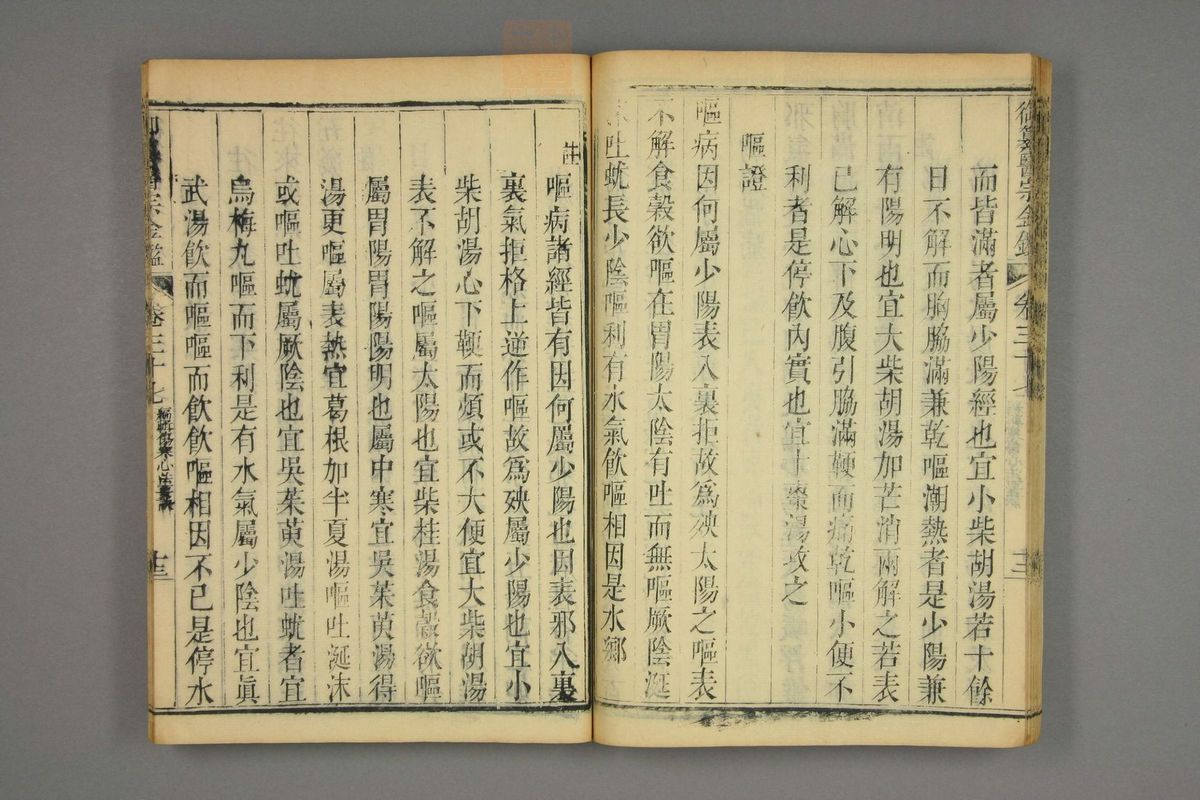 御纂醫宗金鑑 卷三十七 十三
而皆滿者屬少陽經也宜小柴胡湯若十餘
日不解而胸脇滿兼乾嘔潮熱者是少陽兼
有陽明也宜大柴胡湯加芒消兩解之若表
已解心下及腹引脇滿鞕而痛乾嘔小便不
利者是停飲內實也宜十棗湯攻之
嘔證
嘔病因何屬少陽表入裏拒故為殃太陽之嘔表
不解食穀欲嘔在胃陽太陰有吐而無嘔厥陰涎
吐蚘長少陰嘔利有水氣飲嘔相因是水鄉
註
嘔病諸經皆有因何屬少陽也因表邪入裏
裏氣拒格上逆作嘔故為殃屬少陽也宜小
柴胡湯心下鞕而煩或不大便宜大柴胡湯
表不解之嘔屬太陽也宜柴桂湯食穀欲嘔
屬胃陽胃陽陽明也屬中寒宜吳茱萸湯得
湯更嘔屬表熱宜葛根加半夏湯嘔吐涎沫
或嘔吐蚘屬厥陰也宜吳茱萸湯吐蚘者宜
烏梅丸嘔而下利是有水氣屬少陰也宜眞
武湯飲而嘔嘔而飲飲嘔相因不已是停水
宗金鑑 卷三十七 編輯傷寒心法要訣 十三